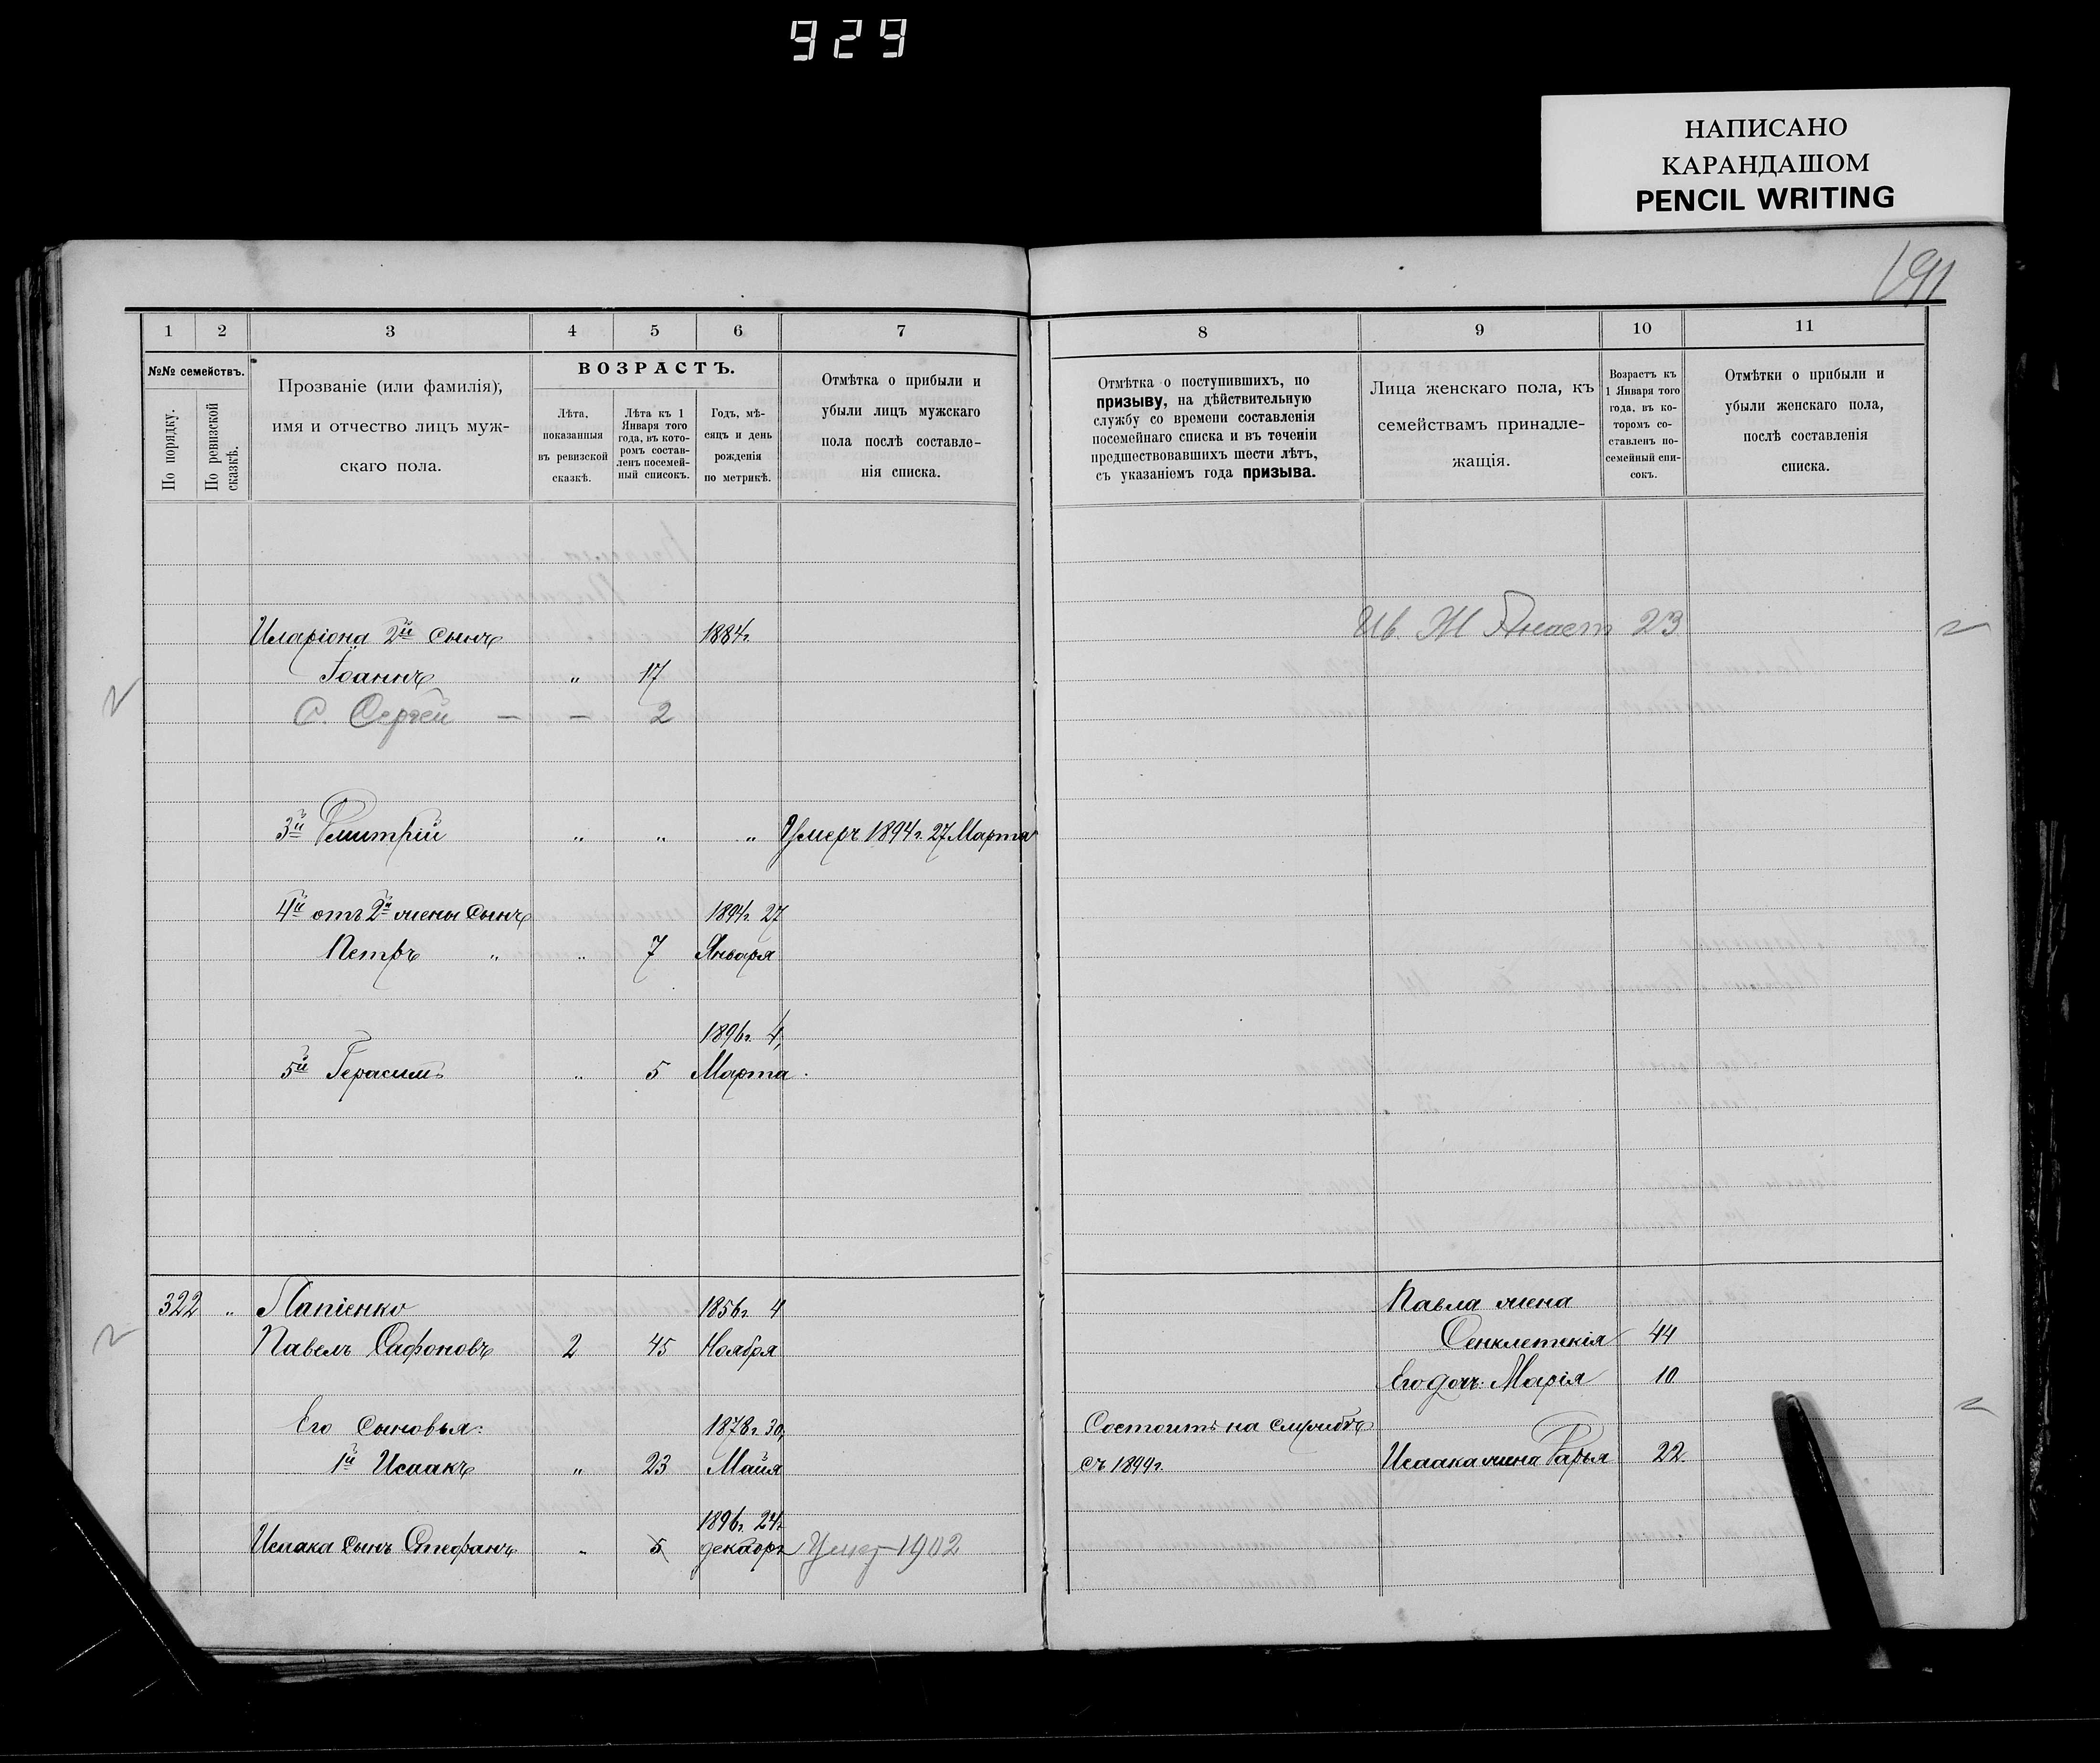 929
НАПИСАНО
КАРАНДАШОМ
PENCIL WRITING
191
1 2 3 4 5 6 7
№№ семействъ.
По порядку.
По ревизской сказкѣ.
Прозваніе (или фамилія),
имя и отчество лицъ муж-
скаго пола.
ВОЗРАСТЪ.
Лѣта,
показанныя
въ ревизской
сказкѣ.
Лѣта къ 1
Января того
года, въ кото-
ромъ состав-
ленъ посемей-
ный списокъ.
Годъ, мѣ-
сяцъ и день
рожденія
по метрикѣ.
Отмѣтка о прибыли и
убыли лицъ мужскаго
пола послѣ составле-
нія списка.
Иларіона 2й сынъ 1884г.
Іоаннъ " 17
С. Сергѣй — — 2
3й Дмитрій " " " Умеръ 1894г. 27 Марта
4й отъ 2й жены сынъ 1894г. 27
Петръ " " 7 Января
1896г. 4,
5й Герасимъ " 5 Марта
322 " Лапіенко 1856г. 4
Павелъ Сафоновъ 2 45 Ноября
Его сыновья: 1878г. 30,
1й Исаакъ " 23 Майя
1896г. 24
Исаака сынъ Стефанъ " 5 декабря Умер 1902
8 9 10 11
Отмѣтка о поступившихъ, по
призыву, на дѣйствительную
службу со времени составленія
посемейнаго списка и въ теченіи
предшествовавшихъ шести лѣтъ,
съ указаніемъ года призыва.
Лица женскаго пола, къ
семействамъ принадле-
жащія.
Возрастъ къ
1 Января того
года, въ ко-
торомъ со-
ставленъ по-
семейный спи-
сокъ.
Отмѣтки о прибыли и
убыли женскаго пола,
послѣ составленія
списка.
Ив. Ж Анаст 23
Павла жена
Сенклетикія 44
Его дочь Марія 10
Состоитъ на службѣ
съ 1899г. Исаака жена Дарья 22.